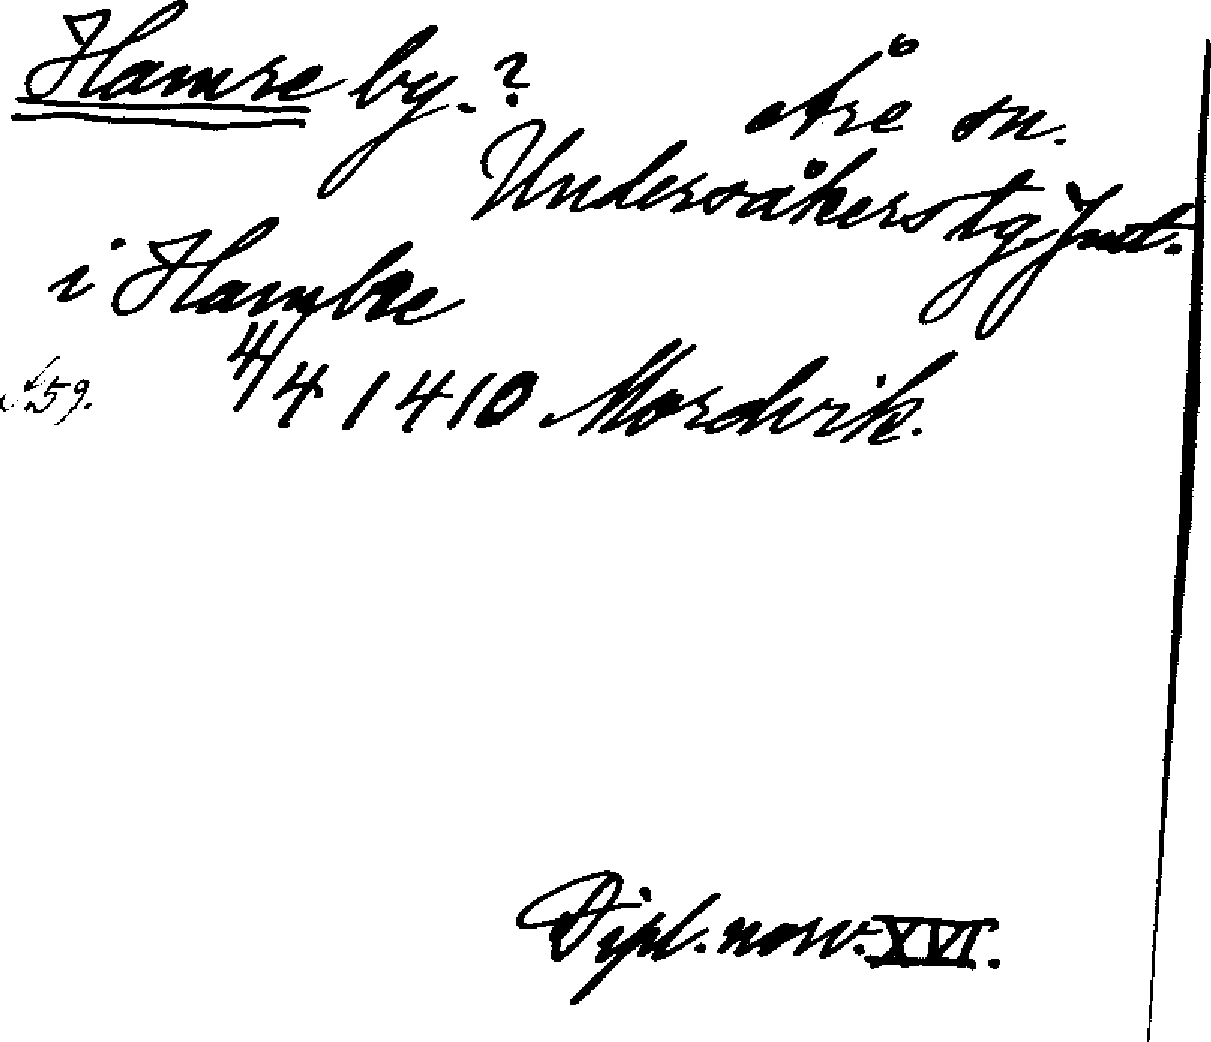 Hamre by. ?
Åre sn.
Undersåkers tg. Jmt.
i Hambre
S. 59. 4/4 1410 Mordvik.
Dipl. norv. XVI.